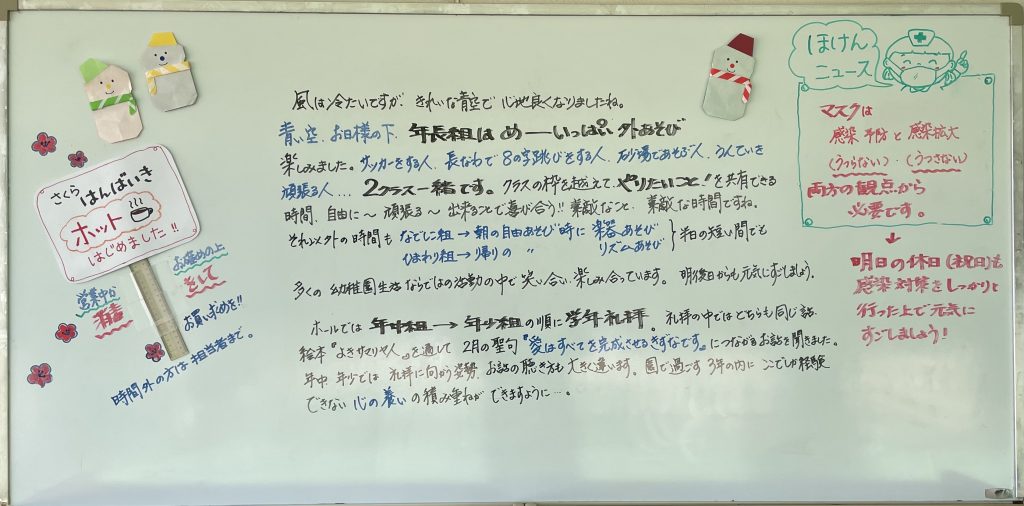 さくら
はんばいき
ホット
はじめました!!
お確めの上
営業中か
消毒
をして
お買い求めを!!
時間外の方は担当者まで。
風は冷たいですが、きれいな青空で心地良くなりましたね。
青い空、お日様の下、年長組は め——いっぱい外あそび
楽しみました。サッカーをする人、長なわで8の字跳びをする人、砂場であそぶ人、うんていを
頑張る人... 2クラス一緒です。クラスの枠を越えて、やりたいこと!を共有できる
時間、自由に〜 頑張る〜 出来ることで喜び合う!! 素敵なこと、素敵な時間ですね。
それ以外の時間も なでしこ組→朝の自由あそび時に 楽器あそび
ひまわり組→帰りの 〃 リズムあそび
半日の短い間でも
多くの幼稚園生活ならではの活動の中で笑い合い、楽しみ合っています。明後日からも元気にすごしましょう。
ホールでは 年中組→年少組の順に学年礼拝。礼拝の中ではどちらも同じ話
絵本『よきサマリヤ人』を通して 2月の聖句『愛はすべてを完成させるきずなです』につながるお話を聞きました。
年中 年少では 礼拝に向かう姿勢、お話の聴き方も大きく違います。園で過ごす3年の内に ここでしか経験
できない 心の養いの積み重ねが できますように…。
ほけん
ニュース
マスクは
感染予防と感染拡大
(うつらない)・(うつさない)
両方の観点から
必要です。
明日の休日(祝日)も
感染対策をしっかりと
行った上で元気に
すごしましょう!